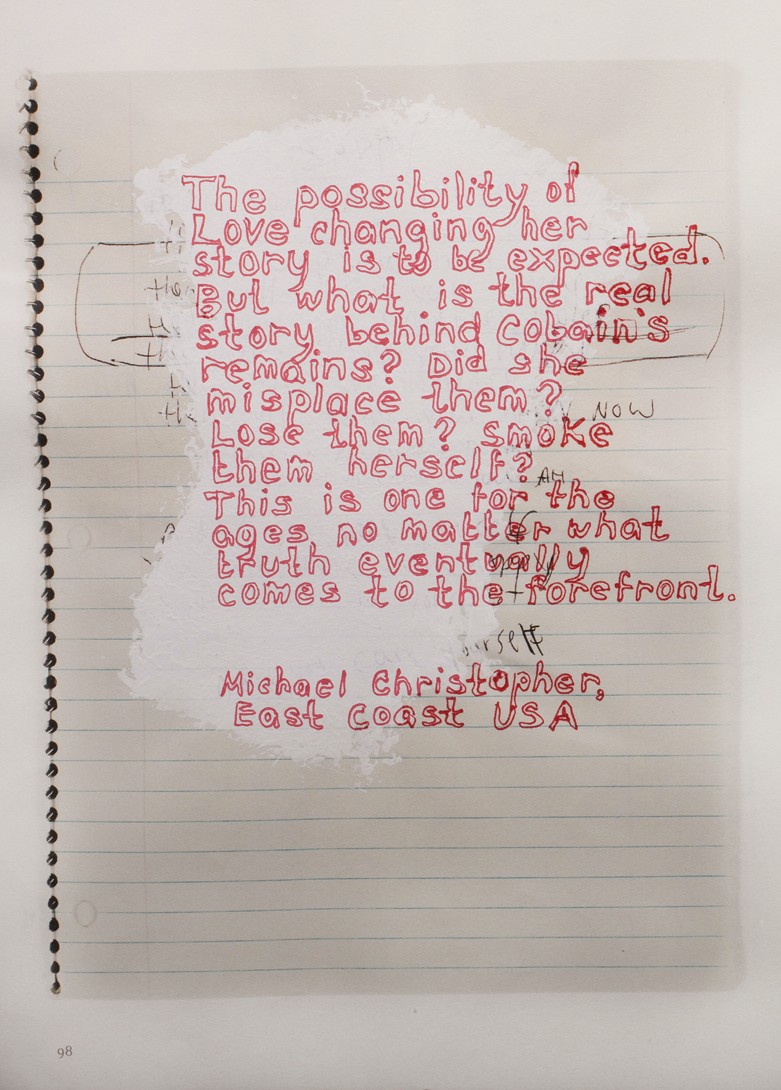 The possibility of
Love changing her
story is to be expected.
But what is the real
story behind Cobain's
remains? Did she
misplace them?
NOW
Lose them? Smoke
them herself?
AM
This is one for the
ages no matter what
truth eventually
comes to the forefront.
Michael Christopher,
East Coast USA
98